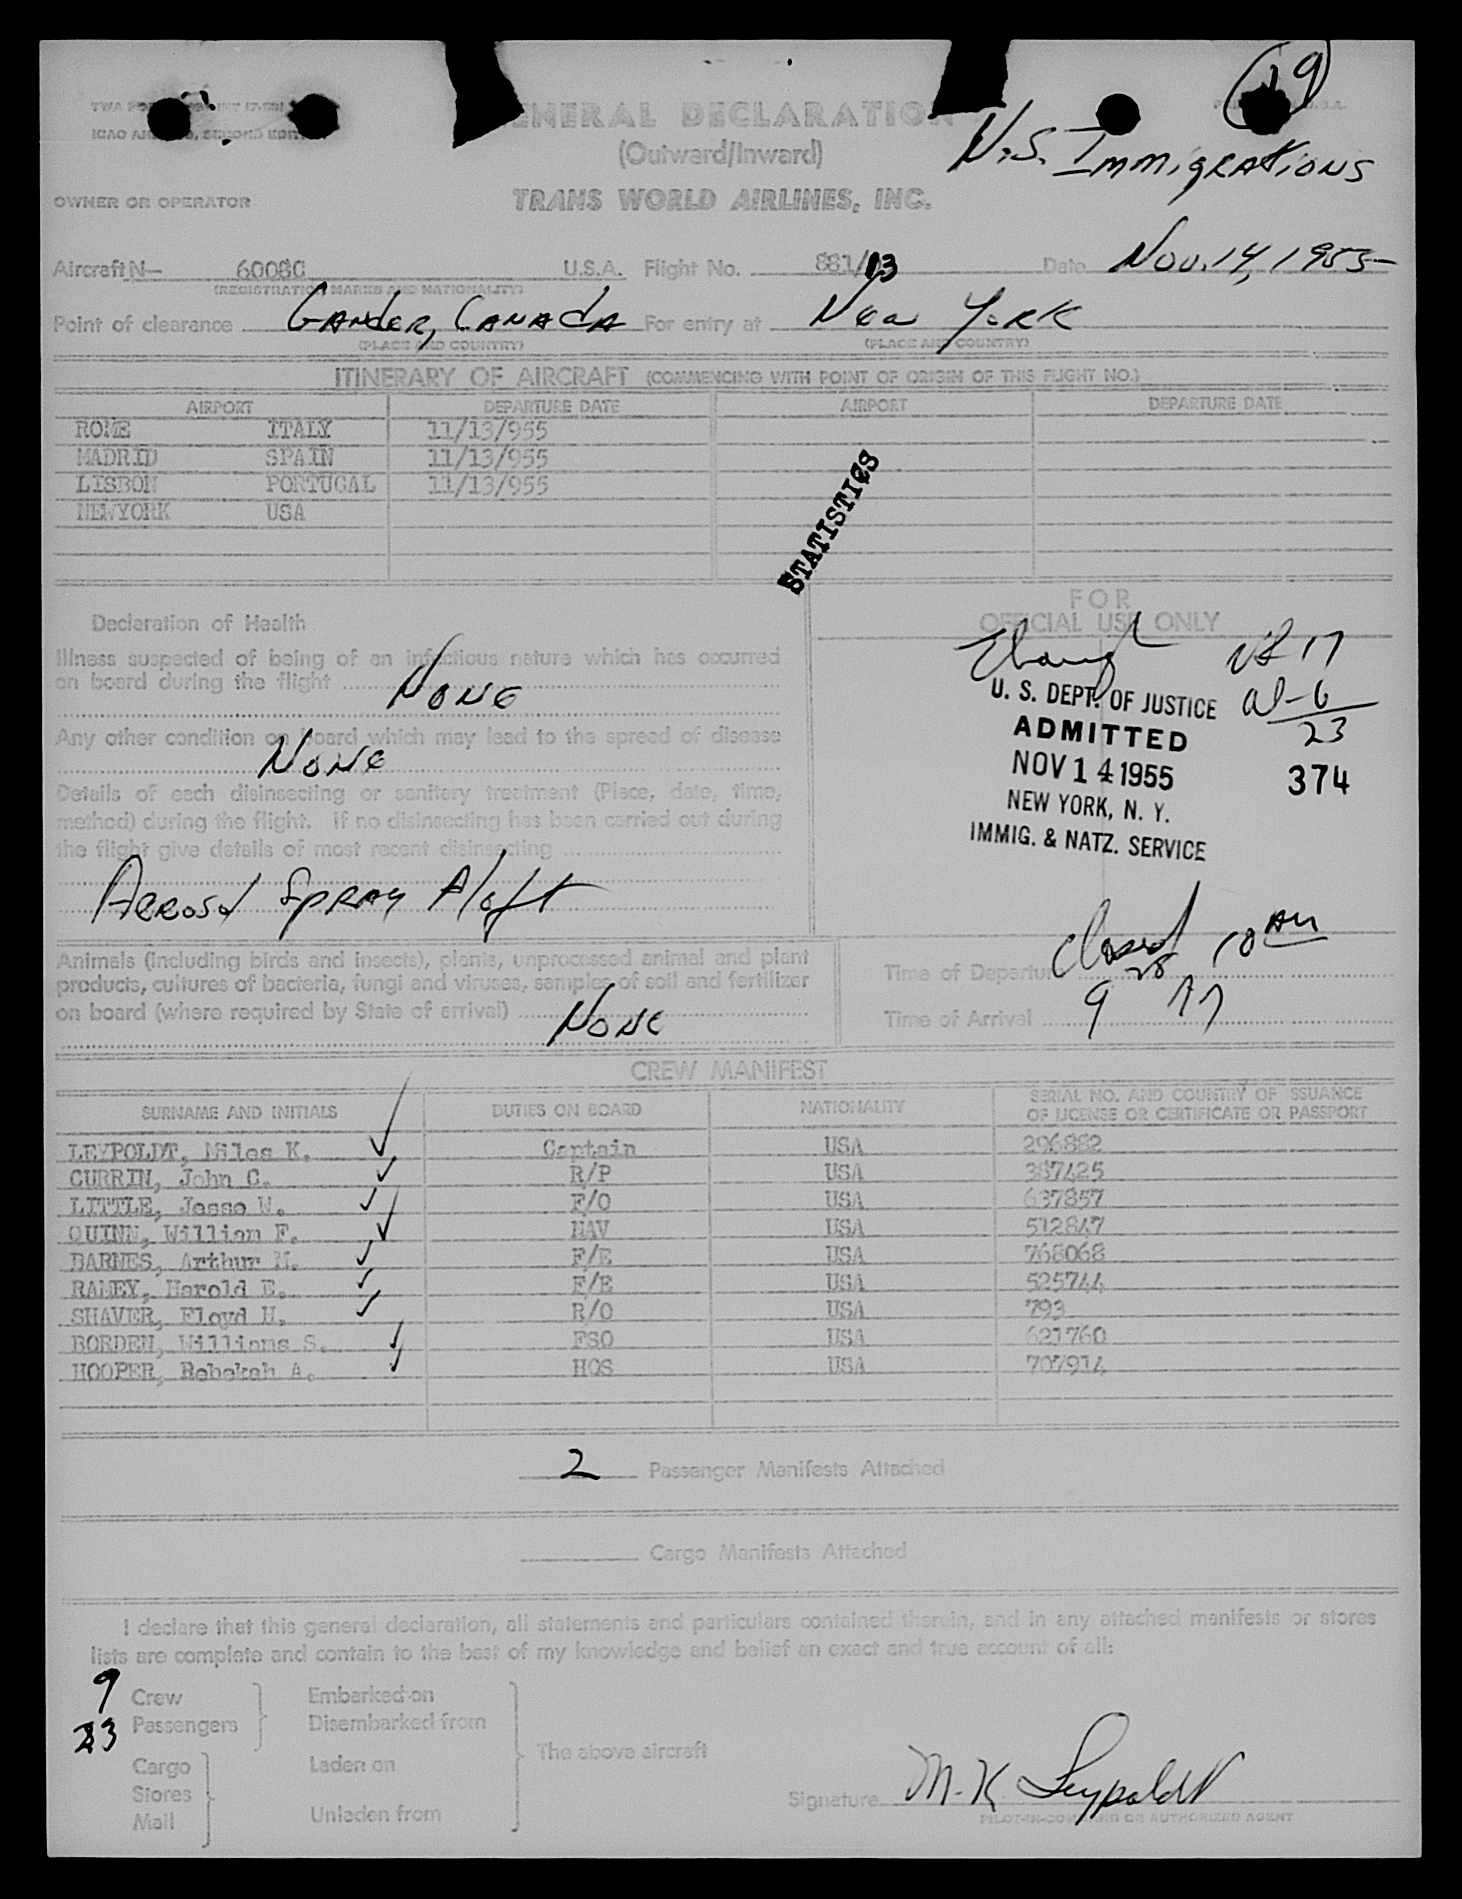 19
GENERAL DECLARATION
(Outward/Inward)
U.S. Immigrations
OWNER OR OPERATOR
TRANS WORLD AIRLINES, INC.
Aircraft N- 6008C U.S.A. Flight No. 881/13 Date Nov. 14, 1955
(REGISTRATION MARKS AND NATIONALITY)
Point of clearance Gander, Canada For entry at New York
(PLACE AND COUNTRY) (PLACE AND COUNTRY)
ITINERARY OF AIRCRAFT (COMMENCING WITH POINT OF ORIGIN OF THIS FLIGHT NO.)
AIRPORT DEPARTURE DATE AIRPORT DEPARTURE DATE
ROME ITALY 11/13/955
MADRID SPAIN 11/13/955
LISBON PORTUGAL 11/13/955
NEWYORK USA
STATISTICS
Declaration of Health
Illness suspected of being of an infectious nature which has occurred
on board during the flight None
Any other condition on board which may lead to the spread of disease
None
Details of each disinsecting or sanitary treatment (Place, date, time,
method) during the flight. If no disinsecting has been carried out during
the flight give details of most recent disinsecting
Aerosol Spray Aloft
FOR
OFFICIAL USE ONLY
U. S. DEPT. OF JUSTICE
ADMITTED
NOV 14 1955
NEW YORK, N. Y.
IMMIG. & NATZ. SERVICE
17
al-6
23
374
Animals (including birds and insects), plants, unprocessed animal and plant
products, cultures of bacteria, fungi and viruses, samples of soil and fertilizer
on board (where required by State of arrival) None
Closed 10 AM
Time of Departure
Time of Arrival 9 28
CREW MANIFEST
SURNAME AND INITIALS DUTIES ON BOARD NATIONALITY SERIAL NO. AND COUNTRY OF ISSUANCE
OF LICENSE OR CERTIFICATE OR PASSPORT
LEYPOLDT, Miles K. Captain USA 296882
CURRIN, John C. R/P USA 387425
LITTLE, Jesse W. F/O USA 637857
QUINN, William F. NAV USA 512847
BARNES, Arthur M. F/E USA 768068
RAMEY, Harold E. F/E USA 525744
SHAVER, Floyd H. R/O USA 793
BORDEN, Williams S. FSO USA 621760
HOOPER, Rebekah A. HOS USA 707914
2 Passenger Manifests Attached
Cargo Manifests Attached
I declare that this general declaration, all statements and particulars contained therein, and in any attached manifests or stores
lists are complete and contain to the best of my knowledge and belief an exact and true account of all:
9 Crew Embarked on
23 Passengers Disembarked from
The above aircraft
Cargo Laden on
Stores
Mail Unladen from
Signature M. K. Leypoldt
PILOT-IN-COMMAND OR AUTHORIZED AGENT